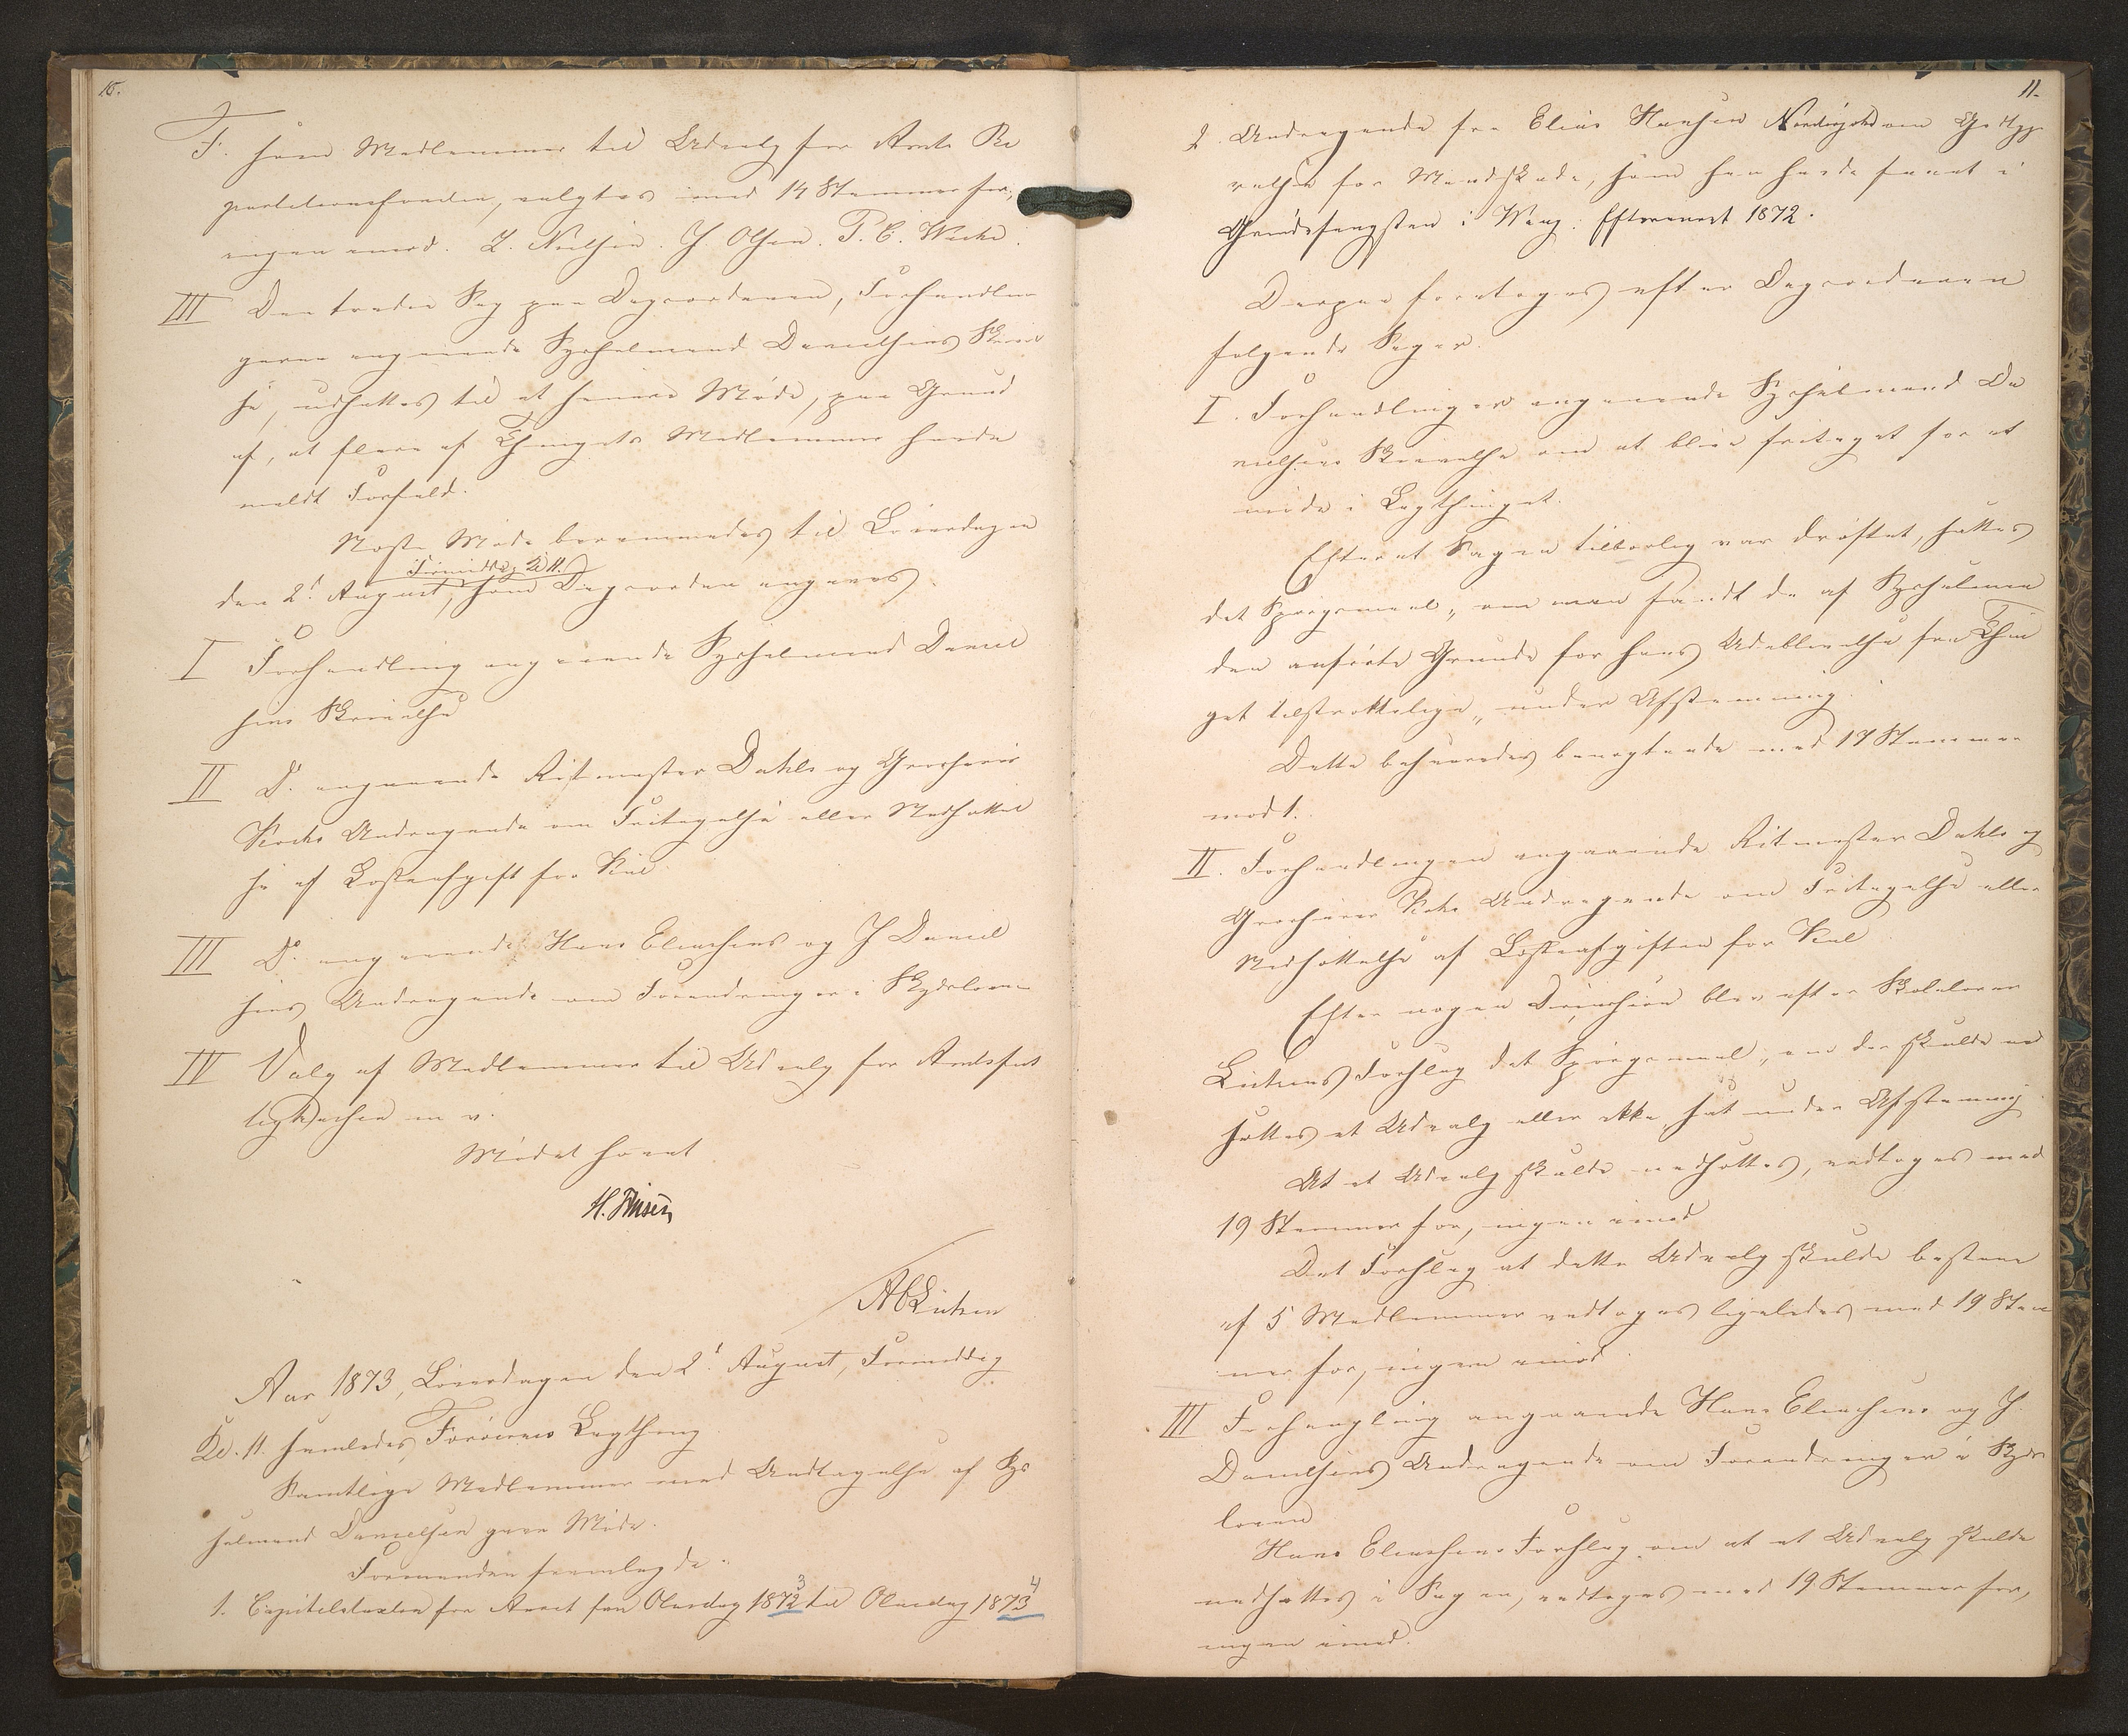 10.
F. som Medlemmer til Udvalg for Amts Re
partitionsfonden, valgtes med 14 Stemmer for,
ingen imod. Z. Nielsen. J Olsen. P. C. Weihe.
III Den tredie Sag paa Dagsordenen, Forhandlin
gerne angaaende Sysselmand Danielsens Skrivel
se, udsattes til et senere Møde, paa Grund
af, at flere af Thingets Medlemmer havde
meldt Forfald.
Næste Møde berammedes til Løverdagen
Formiddag Kl 11.
den 2d. August, som Dagsorden angaves
I Forhandling angaaende Sysselmand Daniel
sens Skrivelse
II Do. angaaende Ritmester Dahls og Grosserer
Kochs Andragende om Fritagelse eller Nedsættel
se af Losseafgift for Kul
III Do. angaaende Hans Eliasens og J Daniel
sens Andragende om Forandringer i Skydsloven
IV Valg af Medlemmer til Udvalg for Amtsfat
tigkassen m v.
Mødet hævet
H. Finsen
Lützen
Aar 1873, Løverdagen den 2d. August, Formiddag
Kl. 11. samledes Færøernes Lagthing
Samtlige Medlemmer med Undtagelse af Sys
selmand Danielsen gave Møde.
Formanden fremlagde:
3 4
1. Capitelstaxten for Aaret fra Olaidag 1872 til Olaidag 1873
11.
2. Andragende fra Elias Hansen Norderjord om Godtgjø
relse for Mandskade, som han havde faaet i
Grindefangsten i Waag. Efteraaret 1872.
Derpaa foretoges efter Dagsordenen
følgende Sager.
I. Forhandlinger angaaende Sysselmand Da
nielsens Skrivelse om at blive fritaget for at
møde i Lagthinget.
Efterat Sagen tilbørlig var drøftet, sattes
det Spørgsmaal, „om man fandt de af Sysselman
den anførte Grunde for hans Udeblivelse fra Thin
get tilstrækkelige„ under Afstemning.
Dette besvaredes benægtende med 17 Stemmer
mod 1.
II. Forhandlingen angaaende Ritmester Dahls og
Grosserer Kochs Andragende om Fritagelse eller
Nedsættelse af Losseafgiften for Kul
Efter nogen Discussion blev efter Skolelærer
Lützens Forslag det Spørgsmaal, „om der skulde ned
sættes et Udvalg eller ikke„ sat under Afstemning.
At et Udvalg skulde nedsættes, vedtoges med
19 Stemmer for, ingen imod
Det Forslag at dette Udvalg skulde bestaae
af 5 Medlemmer vedtoges ligeledes med 19 Stem
mer for, ingen imod.
III Forhandling angaaende Hans Eliasens og J.
Danielsens Andragende om Forandringer i Skyds
loven
Hans Eliasens Forslag om at et Udvalg skulde
nedsættes i Sagen, vedtoges med 19 Stemmer for,
ingen imod.